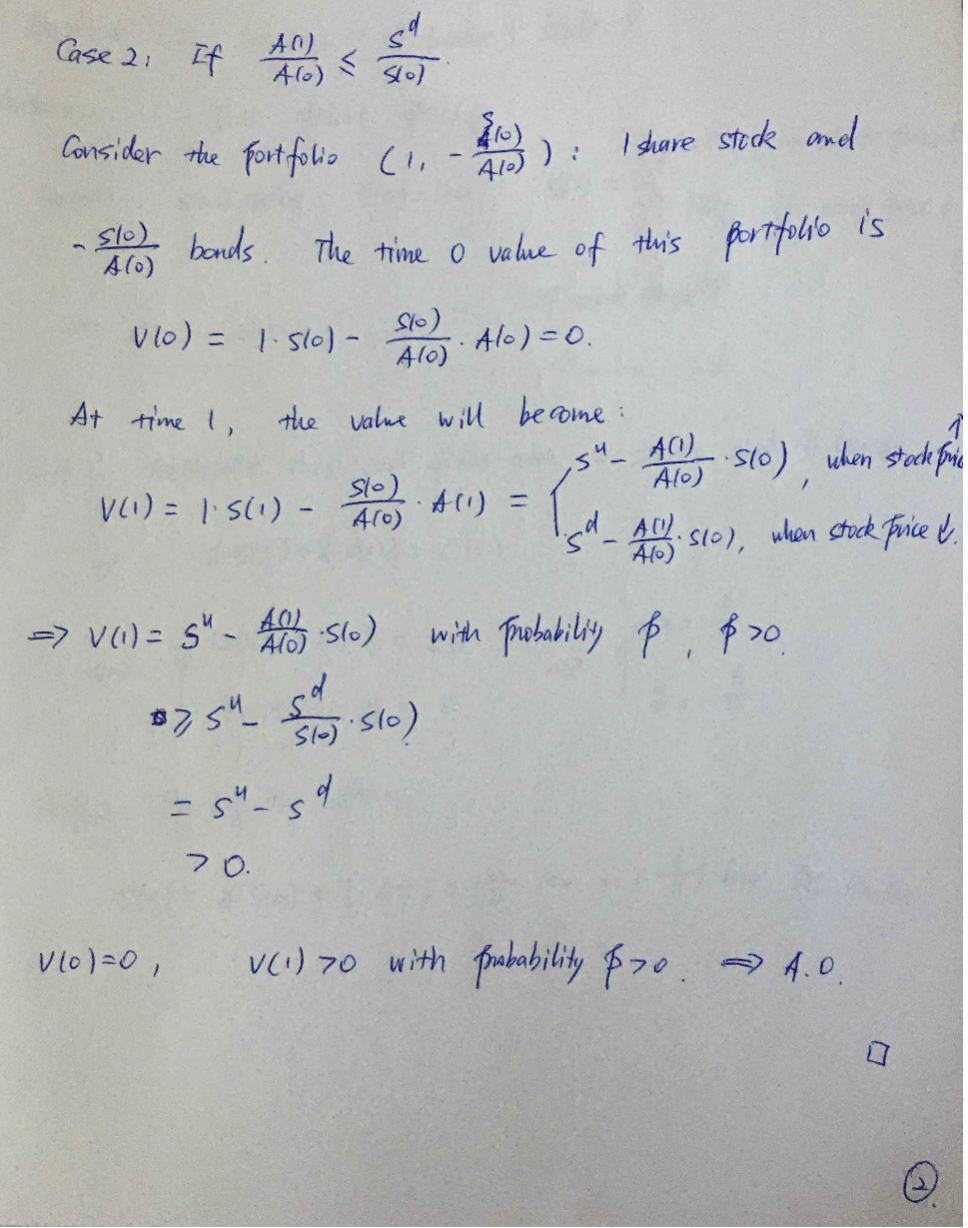 Case 2, If A(1)/A(0) ≤ S^d/S(0).
Consider the portfolio (1, -S(0)/A(0)): 1 share stock and
-S(0)/A(0) bonds. The time 0 value of this portfolio is
V(0) = 1·S(0) - S(0)/A(0) · A(0) = 0.
At time 1, the value will become:
V(1) = 1·S(1) - S(0)/A(0) · A(1) = { S^u - A(1)/A(0) · S(0), when stock price ↑
S^d - A(1)/A(0) · S(0), when stock price ↓.
⇒ V(1) = S^u - A(1)/A(0) · S(0) with probability p, p>0.
≥ S^u - S^d/S(0) · S(0)
= S^u - S^d
> 0.
V(0)=0, V(1)>0 with probability p>0. ⇒ A.O.
□
②